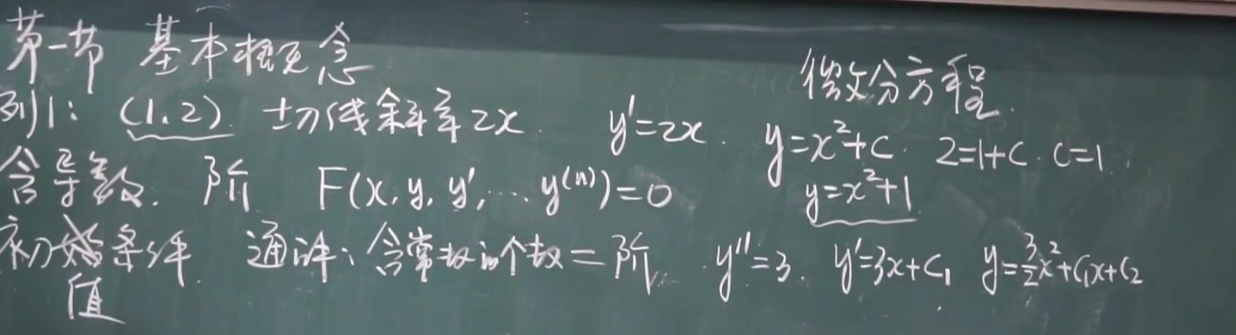 第一节 基本概念
微分方程.
例1: (1,2) 切线斜率2x. y'=2x. y=x²+C. 2=1+C. C=1.
含导数. 阶 F(x, y, y', ... y⁽ⁿ⁾)=0 y=x²+1
初始条件 通解: 含常数的个数=阶 y''=3. y'=3x+C₁ y=3/2x²+C₁x+C₂
值